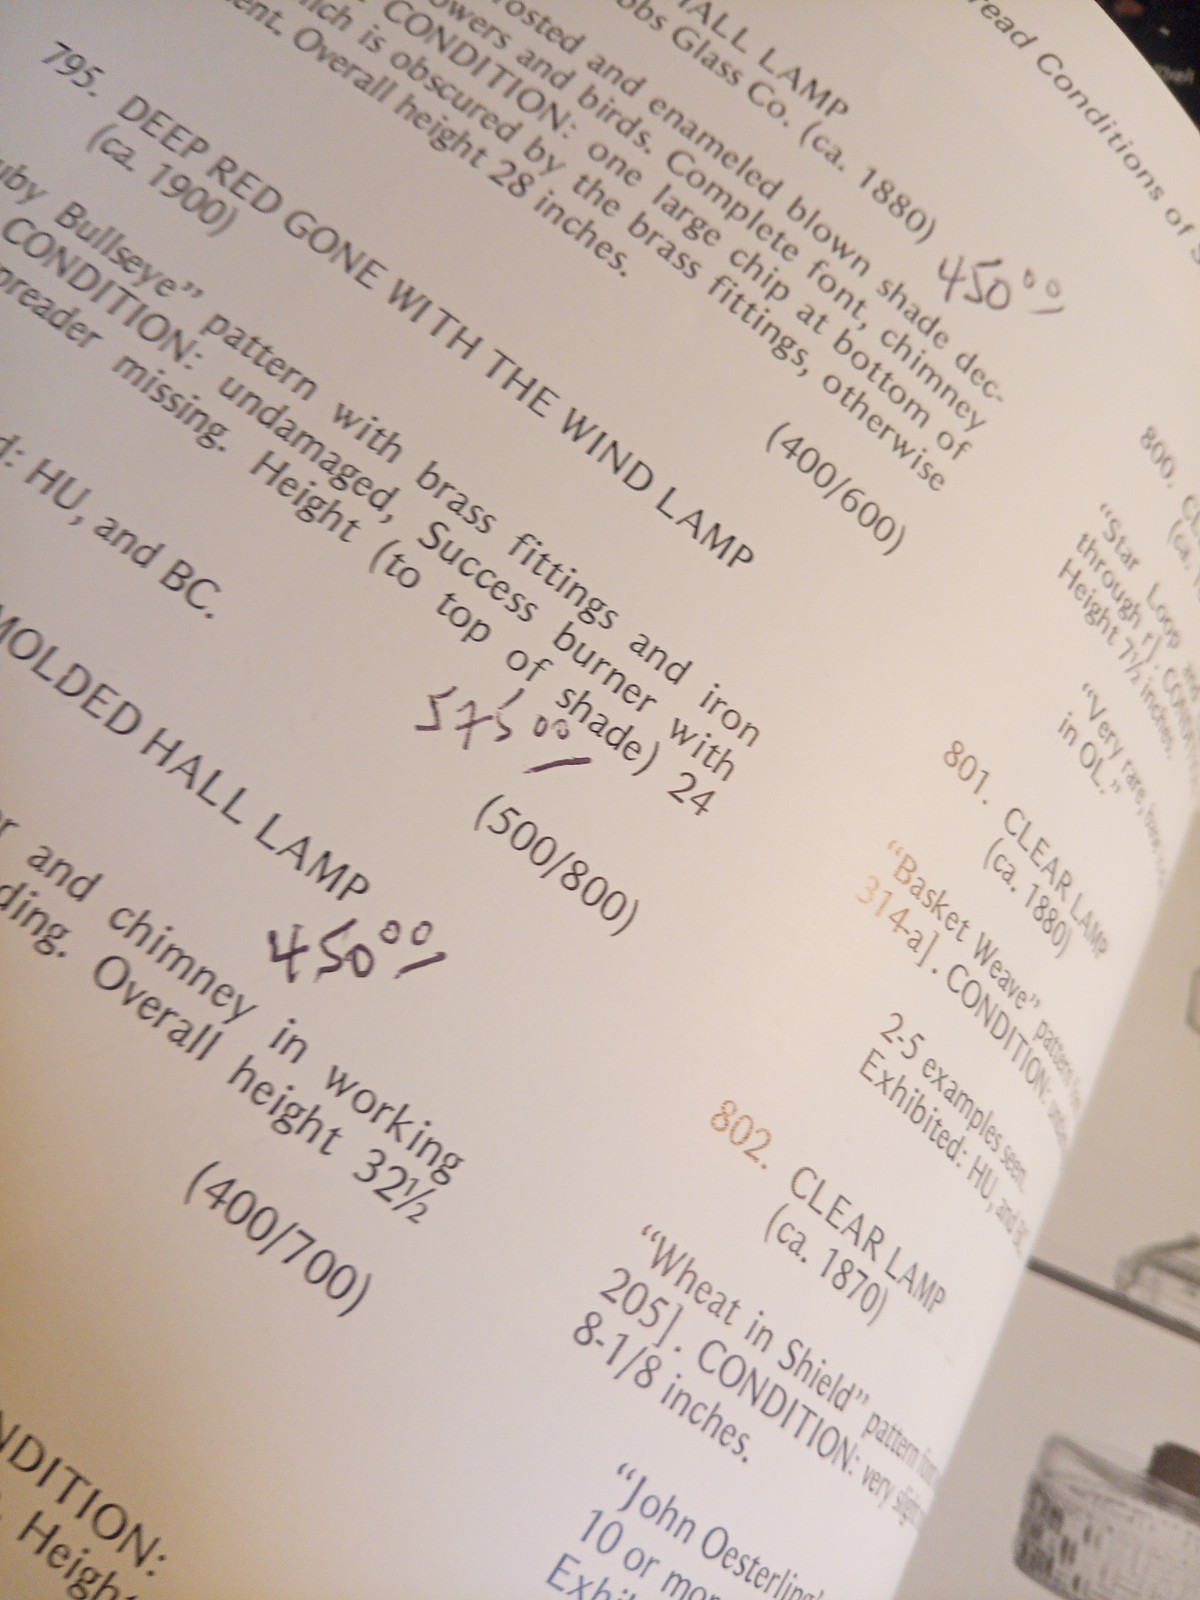 read Conditions of S
HALL LAMP
bbs Glass Co. (ca. 1880)
450⁰⁰
rosted and enameled blown shade dec-
owers and birds. Complete font, chimney
CONDITION: one large chip at bottom of
which is obscured by the brass fittings, otherwise
ent. Overall height 28 inches.
(400/600)
795. DEEP RED GONE WITH THE WIND LAMP
(ca. 1900)
uby Bullseye” pattern with brass fittings and iron
CONDITION: undamaged, Success burner with
preader missing. Height (to top of shade) 24
575⁰⁰
(500/800)
d: HU, and BC.
MOLDED HALL LAMP
450⁰⁰
r and chimney in working
ding. Overall height 32½
(400/700)
NDITION:
Height
800.
(ca.
“Star Loop
through r]. CONDI
Height 7½ inches.
“Very rare,
in OL.”
801. CLEAR LAMP
(ca. 1880)
“Basket Weave” pattern
314-a]. CONDITION:
2-5 examples seen.
Exhibited: HU, and BC
802. CLEAR LAMP
(ca. 1870)
“Wheat in Shield” pattern
205]. CONDITION: very slight
8-1/8 inches.
“John Oesterling
10 or mor
Exhi